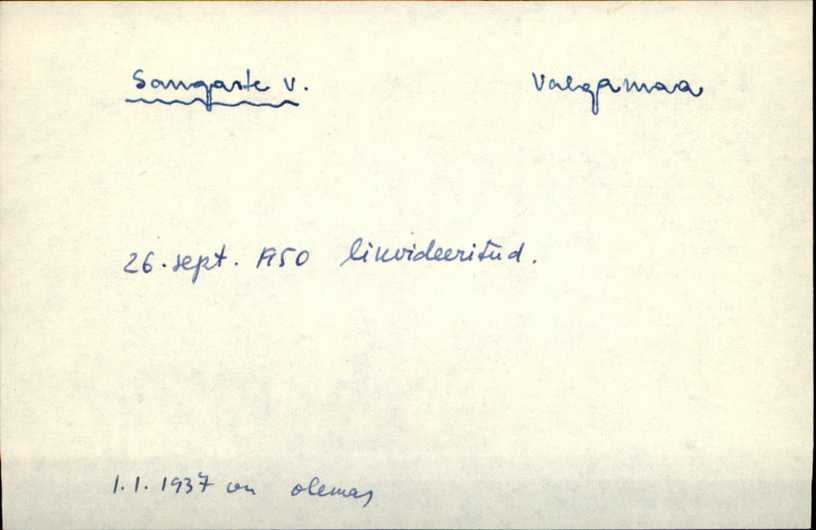 Sangaste v. Valgamaa
26. sept. 1950 likvideeritud.
1.1. 1937 on olemas